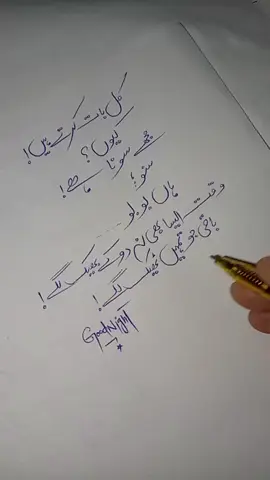 کل بات کرتے ہیں!
کیوں؟
مجھے سونا ہے!
سنو!
ہاں بولو ...
وقت ایسا بھی نہ دو کے بھیک لگے!
باقی جو تمہیں ٹھیک لگے!
Good Night